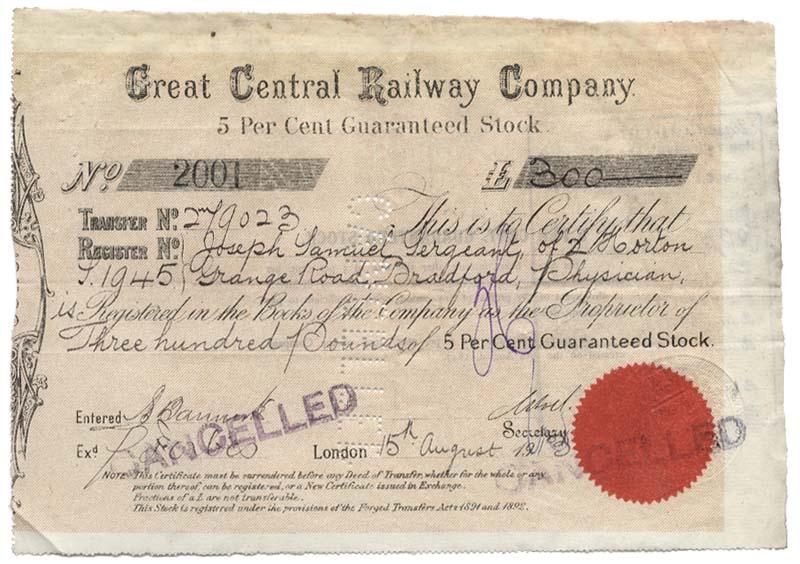 Great Central Railway Company.
5 Per Cent Guaranteed Stock.
No. 2001 £ 300
TRANSFER No. 2m/9023 This is to Certify that
REGISTER No. Joseph Samuel Sergeant, of 2 Horton
S.1945 Grange Road, Bradford, Physician,
is Registered in the Books of the Company as the Proprietor of
Three hundred Pounds of 5 Per Cent Guaranteed Stock.
Entered
Secretary
Exd London 15th August 19
CANCELLED
CANCELLED
NOTE This Certificate must be surrendered before any Deed of Transfer, whether for the whole or any
portion thereof, can be registered, or a New Certificate issued in Exchange.
Fractions of a £ are not transferable.
This Stock is registered under the provisions of the Forged Transfers Acts 1891 and 1892.